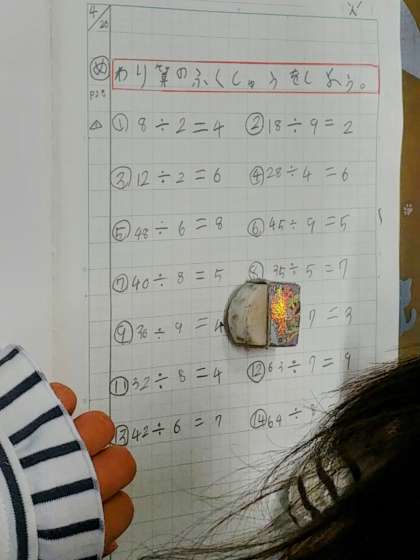 4/20
め わり算のふくしゅうをしよう。
P22
△ ① 8÷2=4 ② 18÷9=2
③ 12÷2=6 ④ 28÷4=6
⑤ 48÷6=8 ⑥ 45÷9=5
⑦ 40÷8=5 ⑧ 35÷5=7
⑨ 36÷9=4 7=3
⑪ 32÷8=4 ⑫ 63÷7=9
⑬ 42÷6=7 ⑭ 64÷8